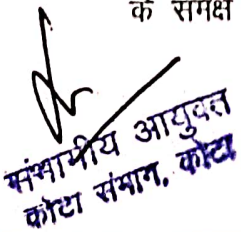 के समक्ष
संभागीय आयुक्त
कोटा संभाग, कोटा